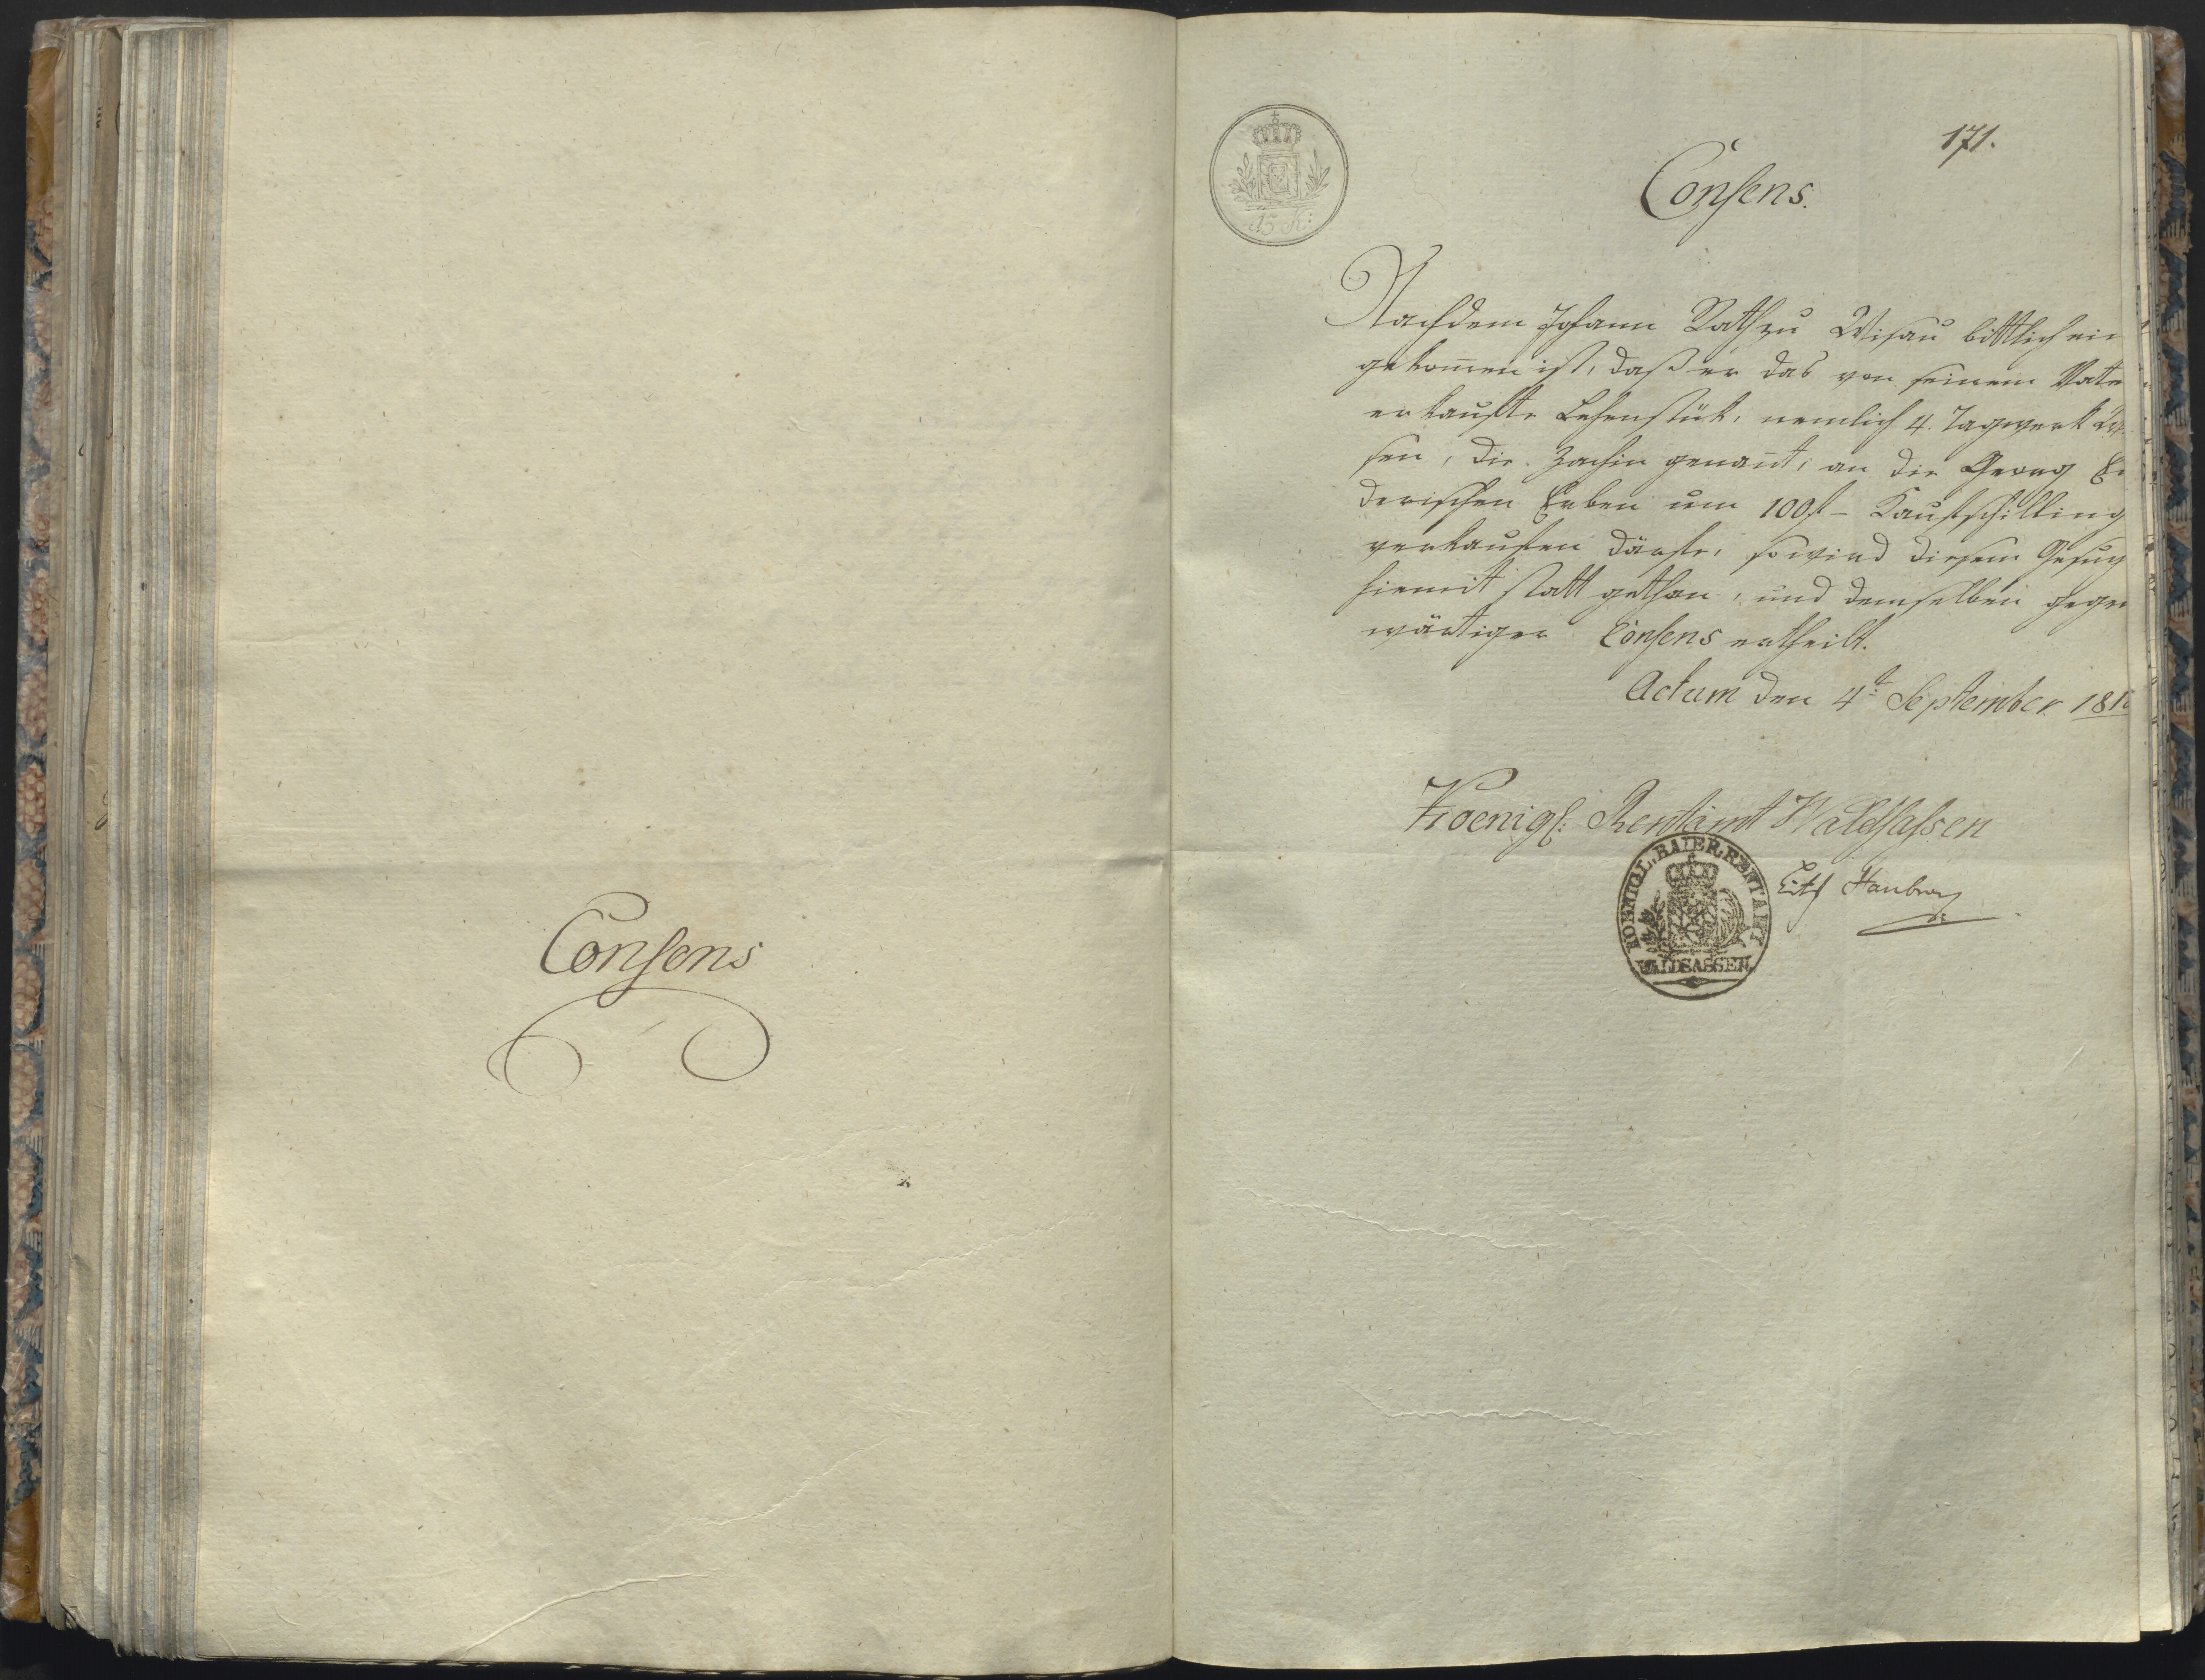 Consens
171.
15 K:
Consens.
Nachdem Johann Rath zu Wisau bittlich ein
gekommen ist, daß er das von seinem Vate
erkaufte Lehenstük, nemlich 4. Tagwerk Wi
sen, die genant, an die Georg
derischen Erben um 100 f - Kaufschilling
verkaufen därfte, so wird diesem Gesuch
hiemit statt gethan, und demselben gegen
wärtiger Consens ertheilt.
Actum den 4t. September 181
Koenigl: Rentamt Waldsassen
KOENIGL. BAIER. RENTAMT
WALDSASSEN.